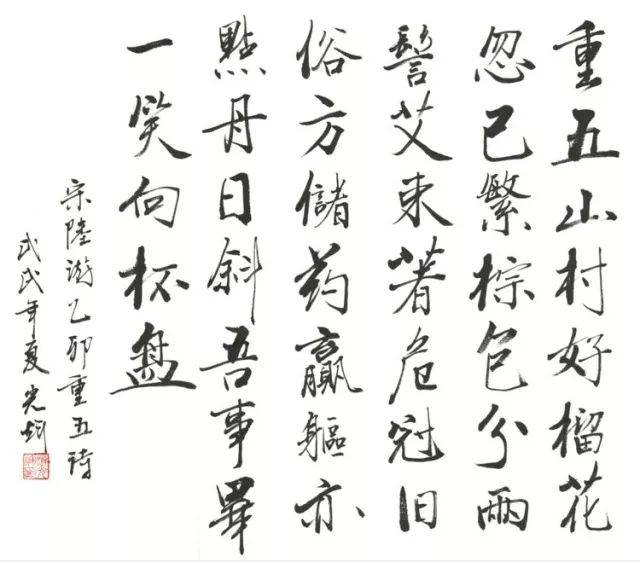 重五山村好榴花
忽已繁棕包分兩
髻艾束著危冠旧
俗方儲药羸軀亦
點丹日斜吾事畢
一笑向杯盤
宋陸游乙卯重五詩
戊戌年夏光